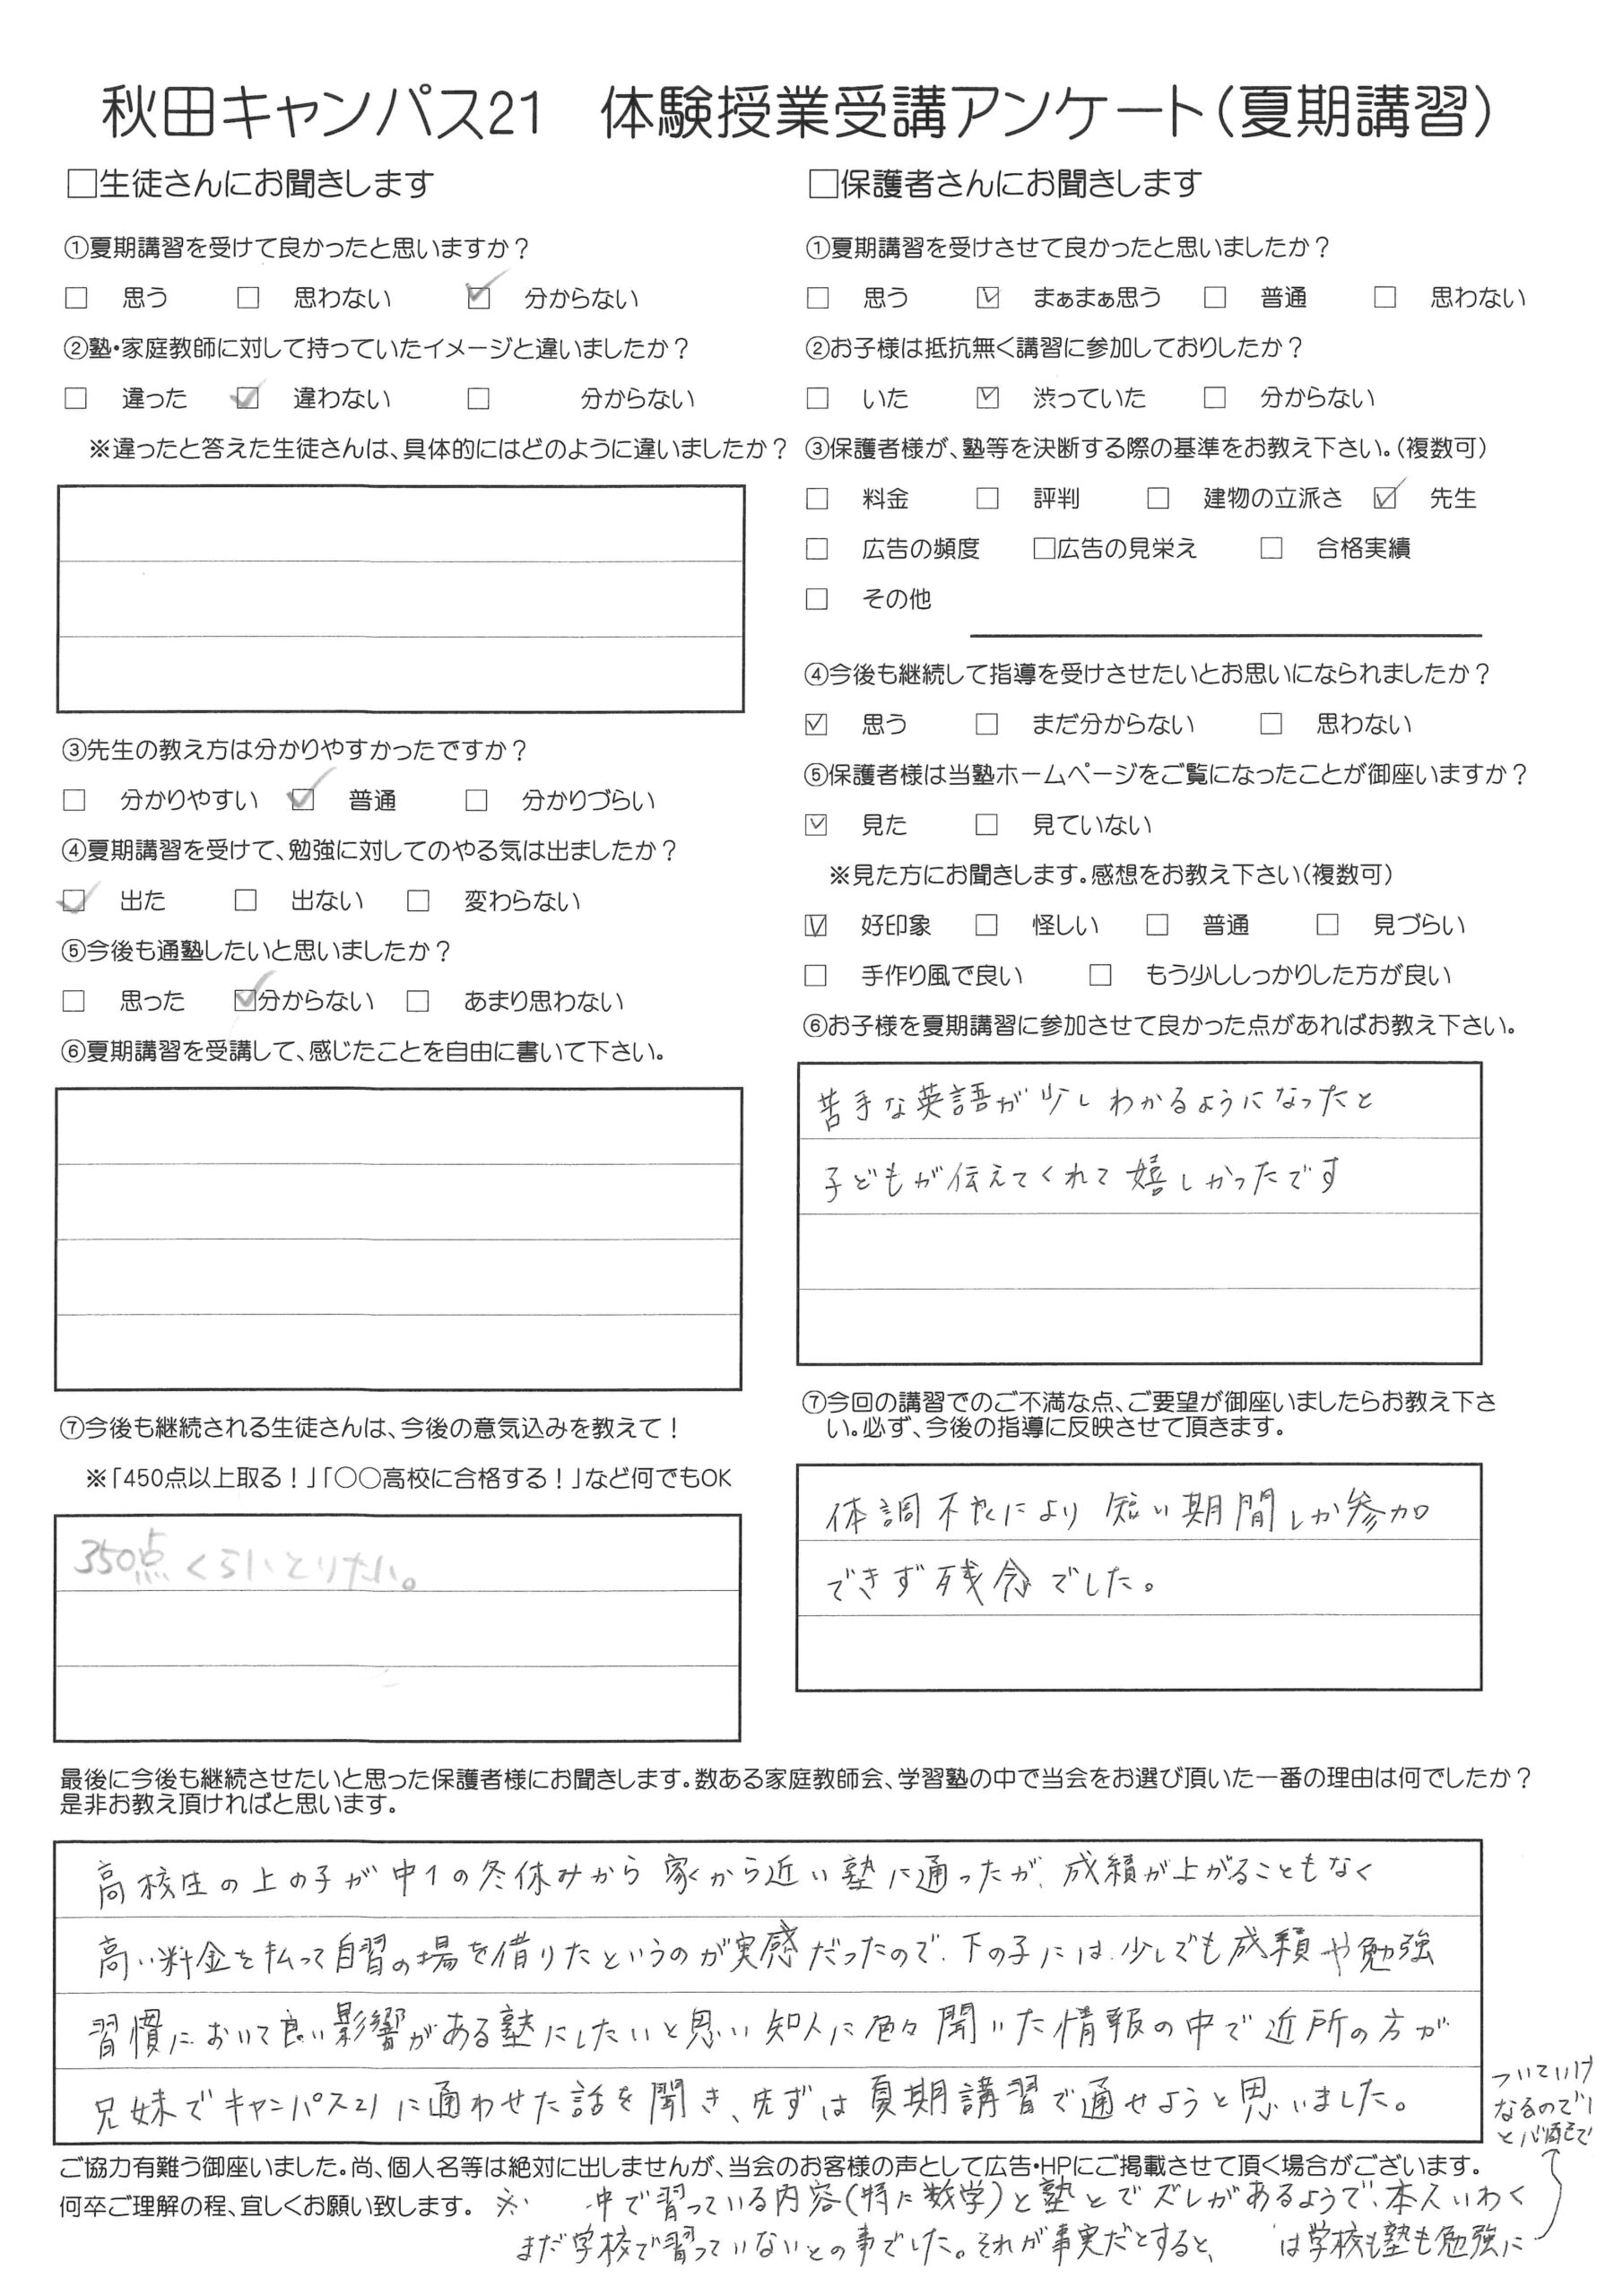 秋田キャンパス21　体験授業受講アンケート（夏期講習）
□生徒さんにお聞きします
①夏期講習を受けて良かったと思いますか？
□ 思う □ 思わない ☑ 分からない
②塾・家庭教師に対して持っていたイメージと違いましたか？
□ 違った ☑ 違わない □ 分からない
※違ったと答えた生徒さんは、具体的にはどのように違いましたか？
③先生の教え方は分かりやすかったですか？
□ 分かりやすい ☑ 普通 □ 分かりづらい
④夏期講習を受けて、勉強に対してのやる気は出ましたか？
☑ 出た □ 出ない □ 変わらない
⑤今後も通塾したいと思いましたか？
□ 思った ☑分からない □ あまり思わない
⑥夏期講習を受講して、感じたことを自由に書いて下さい。
⑦今後も継続される生徒さんは、今後の意気込みを教えて！
※「450点以上取る！」「○○高校に合格する！」など何でもOK
350点くらいとりたい。
□保護者さんにお聞きします
①夏期講習を受けさせて良かったと思いましたか？
□ 思う ☑ まぁまぁ思う □ 普通 □ 思わない
②お子様は抵抗無く講習に参加しておりしたか？
□ いた ☑ 渋っていた □ 分からない
③保護者様が、塾等を決断する際の基準をお教え下さい。（複数可）
□ 料金 □ 評判 □ 建物の立派さ ☑ 先生
□ 広告の頻度 □広告の見栄え □ 合格実績
□ その他
④今後も継続して指導を受けさせたいとお思いになられましたか？
☑ 思う □ まだ分からない □ 思わない
⑤保護者様は当塾ホームページをご覧になったことが御座いますか？
☑ 見た □ 見ていない
※見た方にお聞きします。感想をお教え下さい（複数可）
☑ 好印象 □ 怪しい □ 普通 □ 見づらい
□ 手作り風で良い □ もう少ししっかりした方が良い
⑥お子様を夏期講習に参加させて良かった点があればお教え下さい。
苦手な英語が少しわかるようになったと
子どもが伝えてくれて嬉しかったです
⑦今回の講習でのご不満な点、ご要望が御座いましたらお教え下さ
い。必ず、今後の指導に反映させて頂きます。
体調不良により短い期間しか参加
できず残念でした。
最後に今後も継続させたいと思った保護者様にお聞きします。数ある家庭教師会、学習塾の中で当会をお選び頂いた一番の理由は何でしたか？
是非お教え頂ければと思います。
高校生の上の子が中1の冬休みから家から近い塾に通ったが、成績が上がることもなく
高い料金を払って自習の場を借りたというのが実感だったので、下の子には、少しでも成績や勉強
習慣において良い影響がある塾にしたいと思い知人に色々聞いた情報の中で近所の方が
兄妹でキャンパス21に通わせた話を聞き、先ずは夏期講習で通せようと思いました。
ご協力有難う御座いました。尚、個人名等は絶対に出しませんが、当会のお客様の声として広告・HPにご掲載させて頂く場合がございます。
何卒ご理解の程、宜しくお願い致します。
※ 中で習っている内容（特に数学）と塾とでズレがあるようで、本人いわく
まだ学校で習っていないとの事でした。それが事実だとすると、 は学校も塾も勉強に
ついていけ
なるので
と心配で